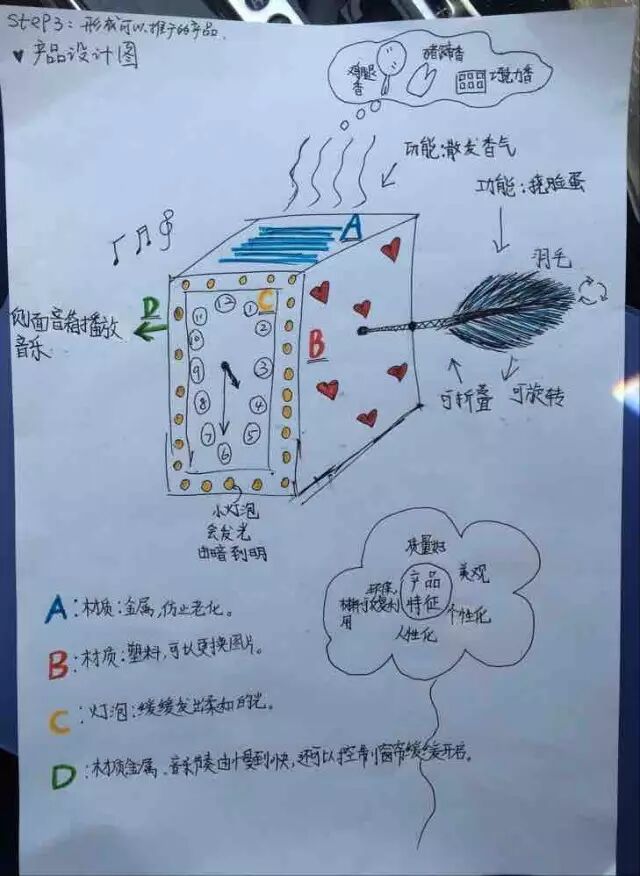 Step3：形成可以推广的产品.
♥产品设计图
鸡腿
香
猪蹄香
巧克力香
功能：散发香气
功能：挠脸蛋
羽毛
可折叠
可旋转
A
B
C
D
侧面音箱播放
音乐
12
1
2
3
4
5
6
7
8
9
10
11
小灯泡
会发光
由暗到明
质量好
美观
个性化
人性化
环保,
材料可反复利
用
产品
特征
A：材质：金属,防止老化。
B：材质：塑料,可以更换图片。
C：灯泡：缓缓发出柔和的光。
D：材质金属、音乐节奏由慢到快,还可以控制窗帘缓缓开启。